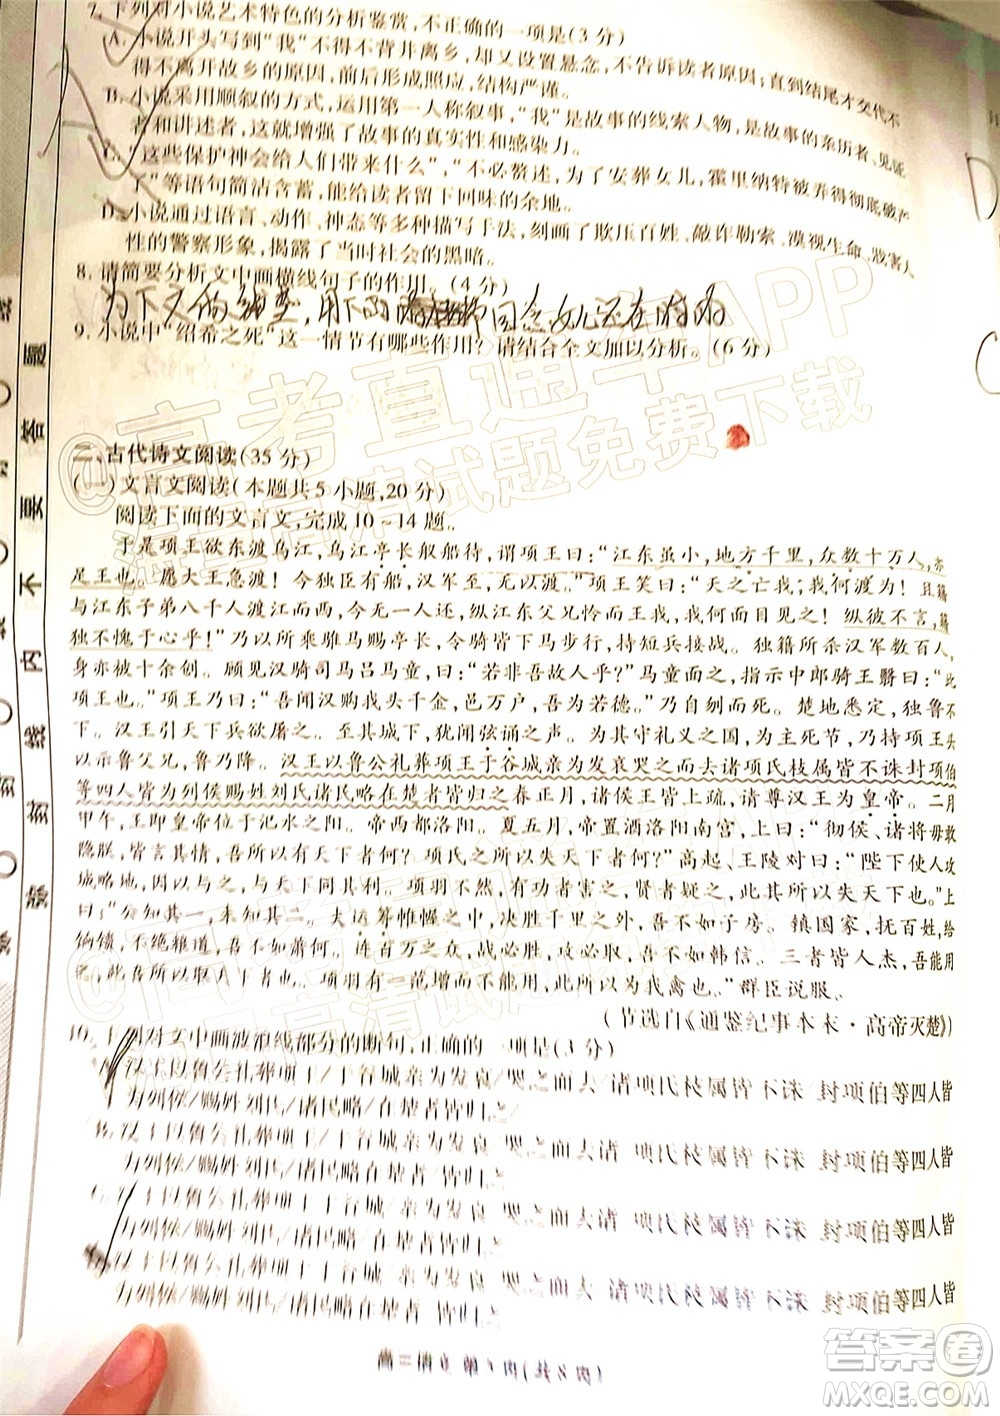 7. 下列对小说艺术特色的分析鉴赏,不正确的一项是(3分)
A. 小说开头写到“我”不得不背井离乡,却又设置悬念,不告诉读者原因,直到结尾才交代不
得不离开故乡的原因,前后形成照应,结构严谨。
B. 小说采用顺叙的方式,运用第一人称叙事,“我”是故事的线索人物,是故事的亲历者、见证
者和讲述者,这增强了故事的真实性和感染力。
C. “这些保护神会给人们带来什么”,“不必赘述,为了安葬女儿,霍里纳特被弄得彻底破产
了”等语句简洁含蓄,能给读者留下回味的余地。
D. 小说通过语言、动作、神态等描写手法,刻画了欺压百姓、敲诈勒索、漠视生命、戕害人
性的警察形象,揭露了当时社会的黑暗。
8. 请简要分析文中画横线句子的作用。(4分)
9. 小说中“绍希之死”这一情节有哪些作用?请结合全文加以分析。(6分)
二、古代诗文阅读(35分)
(一)文言文阅读(本题共5小题,20分)
阅读下面的文言文,完成10~14题。
于是项王欲东渡乌江,乌江亭长舣船待,谓项王曰:“江东虽小,地方千里,众数十万人,亦
足王也。愿大王急渡!今独臣有船,汉军至,无以渡。”项王笑曰:“天之亡我,我何渡为!且籍
与江东子弟八千人渡江而西,今无一人还,纵江东父兄怜而王我,我何面目见之!纵彼不言,籍
独不愧于心乎!”乃以所乘骓马赐亭长,令骑皆下马步行,持短兵接战。独籍所杀汉军数百人,
身亦被十余创。顾见汉骑司马吕马童,曰:“若非吾故人乎?”马童面之,指示中郎骑王翳曰:“此
项王也。”项王乃曰:“吾闻汉购我头千金,邑万户,吾为若德。”乃自刎而死。楚地悉定,独鲁不
下。汉王引天下兵欲屠之。至其城下,犹闻弦诵之声。为其守礼义之国,为主死节,乃持项王头
示鲁父兄,鲁乃降。汉王以鲁公礼葬项王于谷城亲为发哀哭之而去诸项氏枝属皆不诛封项伯
等四人皆为列侯赐姓刘氏诸民略在楚者皆归之春正月,诸侯皆上疏,请尊汉王为皇帝。二月
甲午,王即皇帝位于汜水之阳。帝西都洛阳。夏五月,帝置酒洛阳南宫,上曰:“彻侯、诸将毋敢
隐朕,皆言其情。吾所以有天下者何?项氏之所以失天下者何?”高起、王陵对曰:“陛下使人攻
城略地,因以与之,与天下同其利。项羽不然,有功者害之,贤者疑之,此其所以失天下也。”上
曰:“公知其一,未知其二。夫运筹帷幄之中,决胜千里之外,吾不如子房。镇国家,抚百姓,给
饷馈,不绝粮道,吾不如萧何。连百万之众,战必胜,攻必取,吾不如韩信。三者皆人杰,吾能用
之,此吾所以取天下者也。项羽有一范增而不能用,此所以为我禽也。”群臣说服。
(节选自《通鉴纪事本末·高帝灭楚》)
10. 下列对文中画波浪线部分的断句,正确的一项是(3分)
A. 汉王以鲁公礼葬项王于谷城 亲为发哀 哭之而去 诸项氏枝属皆不诛 封项伯等四人皆
为列侯/赐姓刘氏/诸民略/在楚者皆归之
B. 汉王以鲁公礼葬项王于谷城 亲为发哀 哭之而去诸 项氏枝属皆不诛 封项伯等四人皆
为列侯/赐姓刘氏/诸民略在楚者 皆归之
C. 汉王以鲁公礼葬项王于谷城 亲为发哀 哭之而去诸 项氏枝属皆不诛 封项伯等四人皆
为列侯/赐姓刘氏/诸民略/在楚者皆归之
汉王以鲁公礼葬项王于谷城 亲为发哀 哭之而去 诸项氏枝属皆不诛 封项伯等四人皆
为列侯/赐姓刘氏/诸民略在楚者 皆归之
密 封 线 内 不 要 答 题
@高考直通车APP
海量高清试题免费下载
答案卷
MXQE.COM